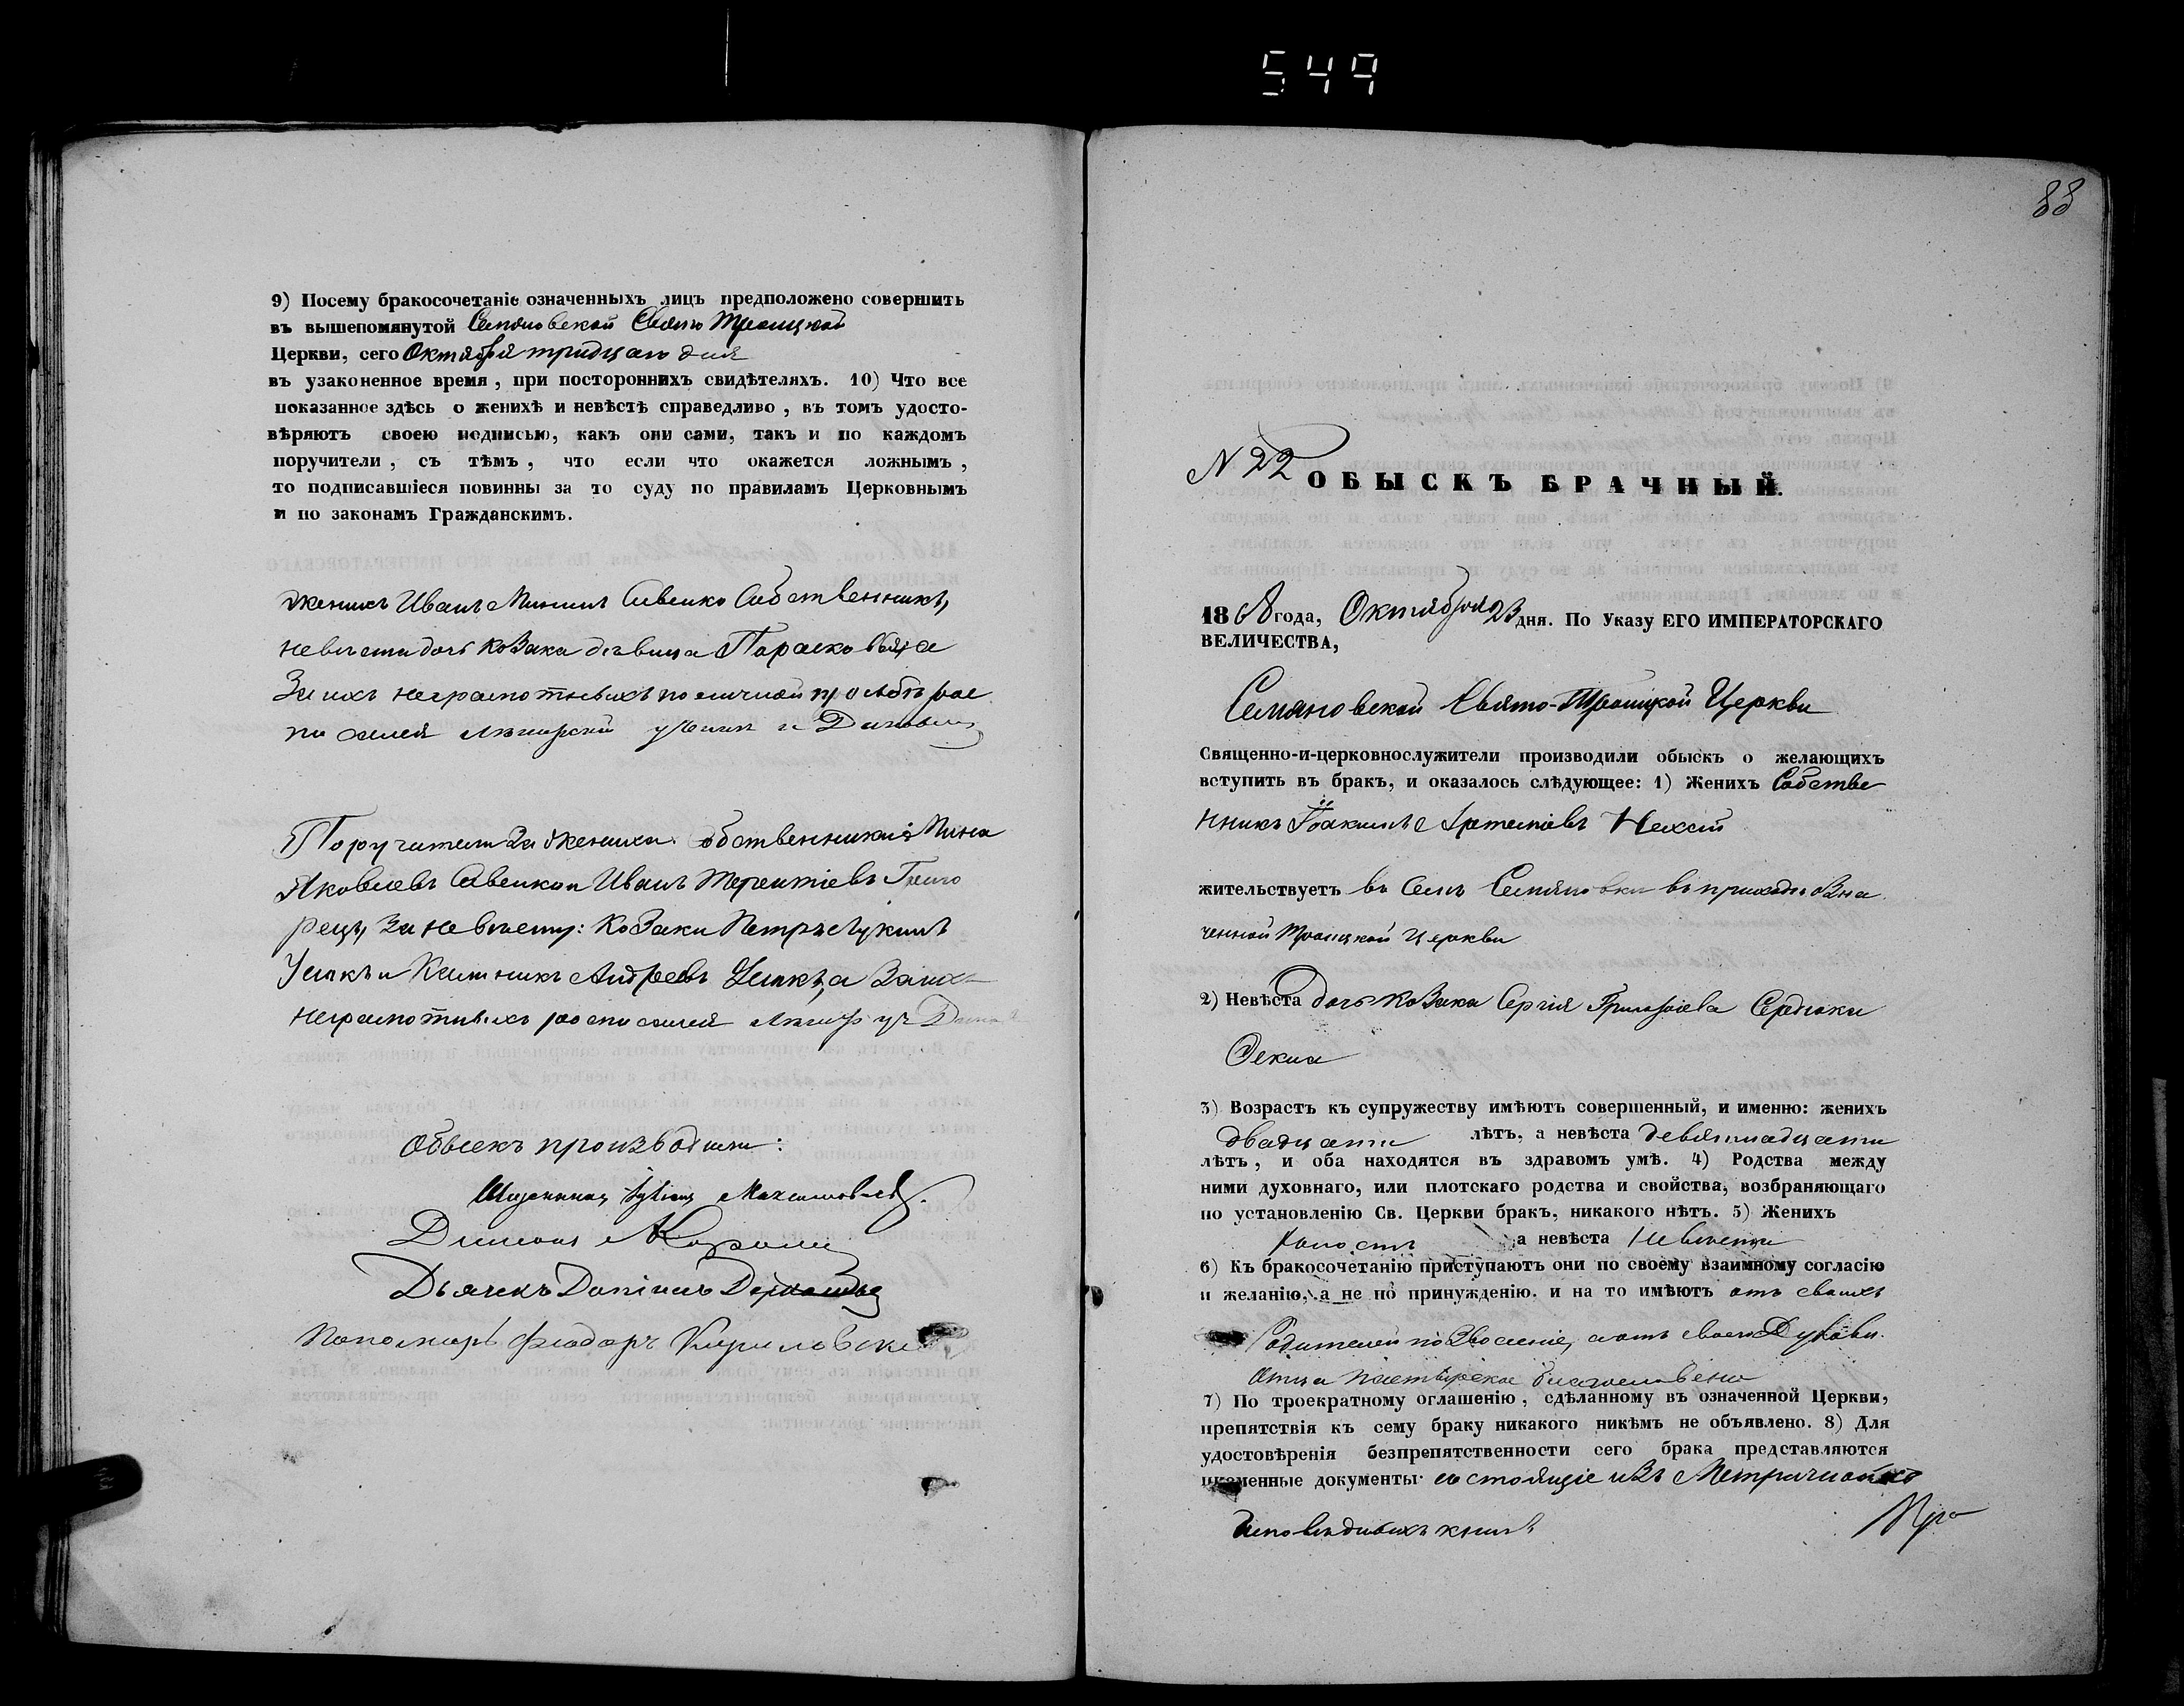 549
9) Посему бракосочетаніе означенныхъ лицъ предположено совершить
въ вышепомянутой Семяновской Свято Троицкой
Церкви, сего Октября тридцаго дня
въ узаконенное время, при постороннихъ свидѣтеляхъ. 10) Что все
показанное здѣсь о женихѣ и невѣстѣ справедливо, въ томъ удосто-
вѣряютъ своею подписью, какъ они сами, такъ и по каждомъ
поручители, съ тѣмъ, что если что окажется ложнымъ,
то подписавшіеся повинны за то суду по правиламъ Церковнымъ
и по законамъ Гражданскимъ.
Женихъ Иванъ Мининъ Савенко Собственникъ,
невѣста дочь козака дѣвица Парасковія а
За ихъ неграмотныхъ по личной прозьбѣ рос
Поручители за жениха: Собственники: Мина
Яковлевъ Савенко и Иванъ Терентіевъ Григо
рецъ, за невѣсту: козаки Петръ Лукинъ
и Андреевъ а за ихъ
неграмотныхъ росписался
Обыскъ производили:
Священникъ Максимовичъ.
Дьячекъ Даніилъ
Пономарь Феодоръ Кириловск
83
N 22 ОБЫСКЪ БРАЧНЫЙ.
1868 года, Октября 23 дня. По Указу ЕГО ИМПЕРАТОРСКАГО
ВЕЛИЧЕСТВА,
Семяновской Свято-Троицкой Церкви
Священно-и-церковнослужители производили обыскъ о желающихъ
вступить въ бракъ, и оказалось слѣдующее: 1) Женихъ Собстве
нникъ Іоакимъ Артеміевъ Нехай
жительствуетъ въ Селѣ Семяновки въ приходѣ озна
ченной Троицкой Церкви
2) Невѣста дочь козака Сергія Григоріева Сердюка
Фекла
3) Возрастъ къ супружеству имѣютъ совершенный, и именно: женихъ
двадцати лѣтъ, а невѣста девятнадцати
лѣтъ, и оба находятся въ здравомъ умѣ. 4) Родства между
ними духовнаго, или плотскаго родства и свойства, возбраняющаго
по установленію Св. Церкви бракъ, никакого нѣтъ. 5) Женихъ
холостъ а невѣста невѣста
6) Къ бракосочетанію приступаютъ они по своему взаимному согласію
и желанію, а не по принужденію. и на то имѣютъ отъ своихъ
Родителей позволеніе, а отъ своего Духовн.
Отца Пастырское благословеніе
7) По троекратному оглашенію, сдѣланному въ означенной Церкви,
препятствія къ сему браку никакого никѣмъ не объявлено. 8) Для
удостовѣренія безпрепятственности сего брака представляются
письменные документы: состоящіе изъ Метрич
Исповѣдныхъ книгъ